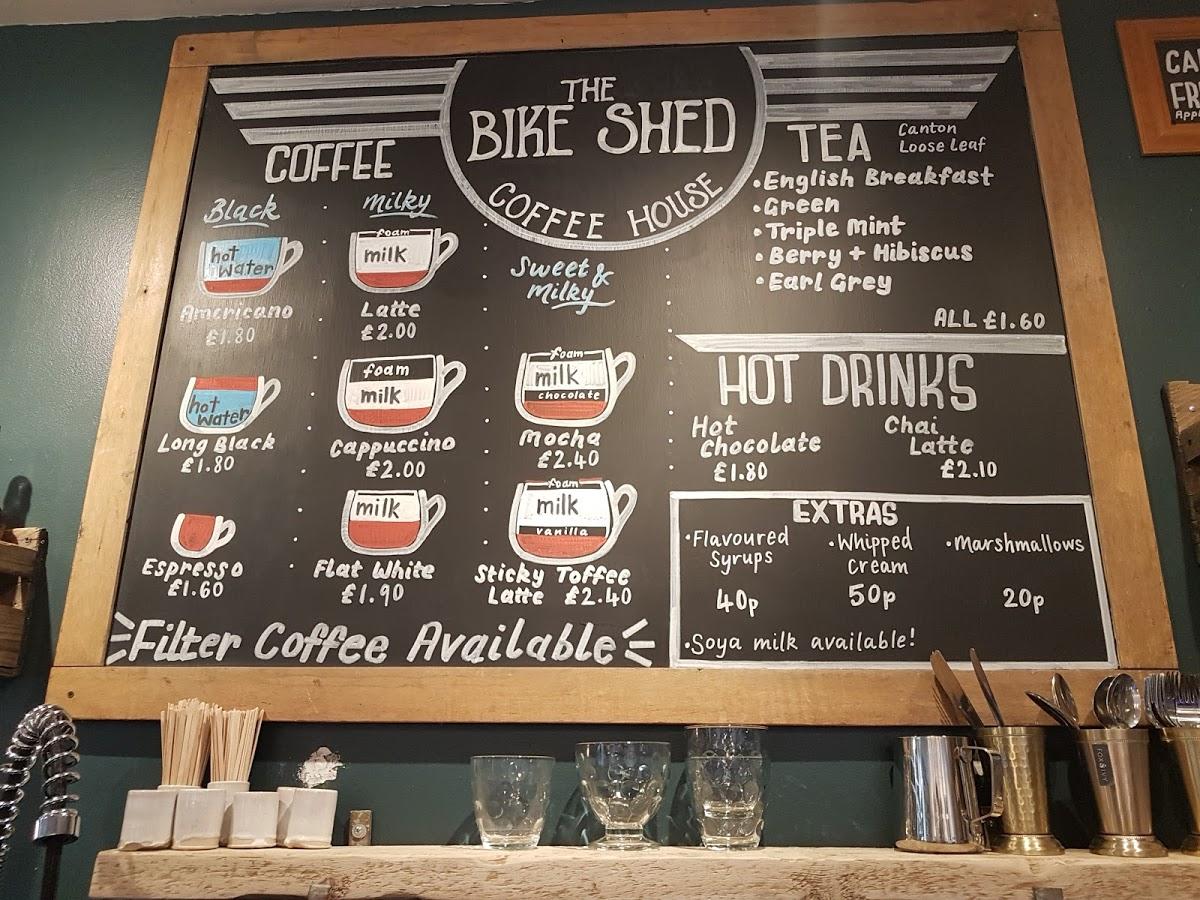 THE
BIKE SHED
COFFEE HOUSE
COFFEE
Black
hot
water
Americano
£1.80
hot
water
Long Black
£1.80
Espresso
£1.60
Milky
foam
milk
Latte
£2.00
foam
milk
Cappuccino
£2.00
milk
Flat White
£1.90
Sweet &
Milky
foam
milk
chocolate
Mocha
£2.40
foam
milk
vanilla
Sticky Toffee
Latte £2.40
Filter Coffee Available
TEA
Canton
Loose Leaf
•English Breakfast
•Green
•Triple Mint
•Berry + Hibiscus
•Earl Grey
ALL £1.60
HOT DRINKS
Hot
Chocolate
£1.80
Chai
Latte
£2.10
EXTRAS
•Flavoured
Syrups
40p
•Whipped
Cream
50p
•Marshmallows
20p
•Soya milk available!
FOX & IVY